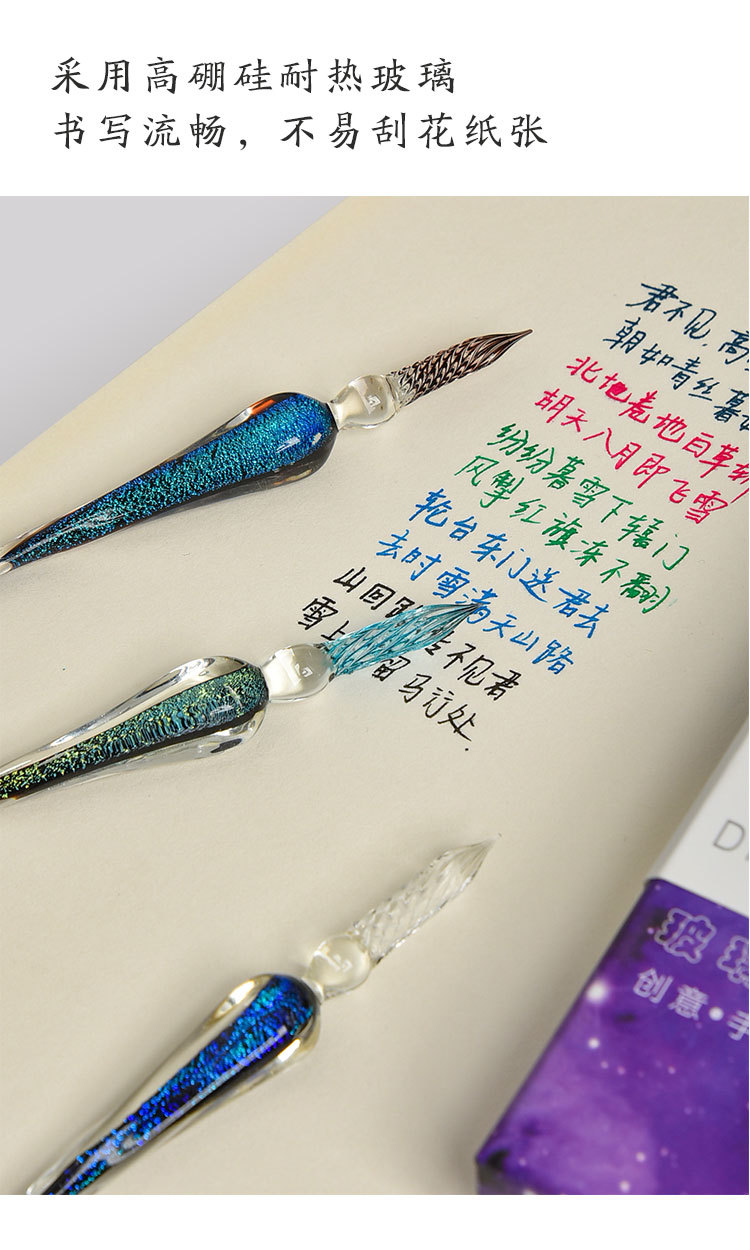 采用高硼硅耐热玻璃
书写流畅，不易刮花纸张
君不见,高
朝如青丝暮
北地卷地白草
胡天八月即飞雪
纷纷暮雪下辕门
风掣红旗冻不翻
轮台东门送君去
去时雪满天山路
山回 不见君
雪上 留马行处.
D
玻璃
创意•手